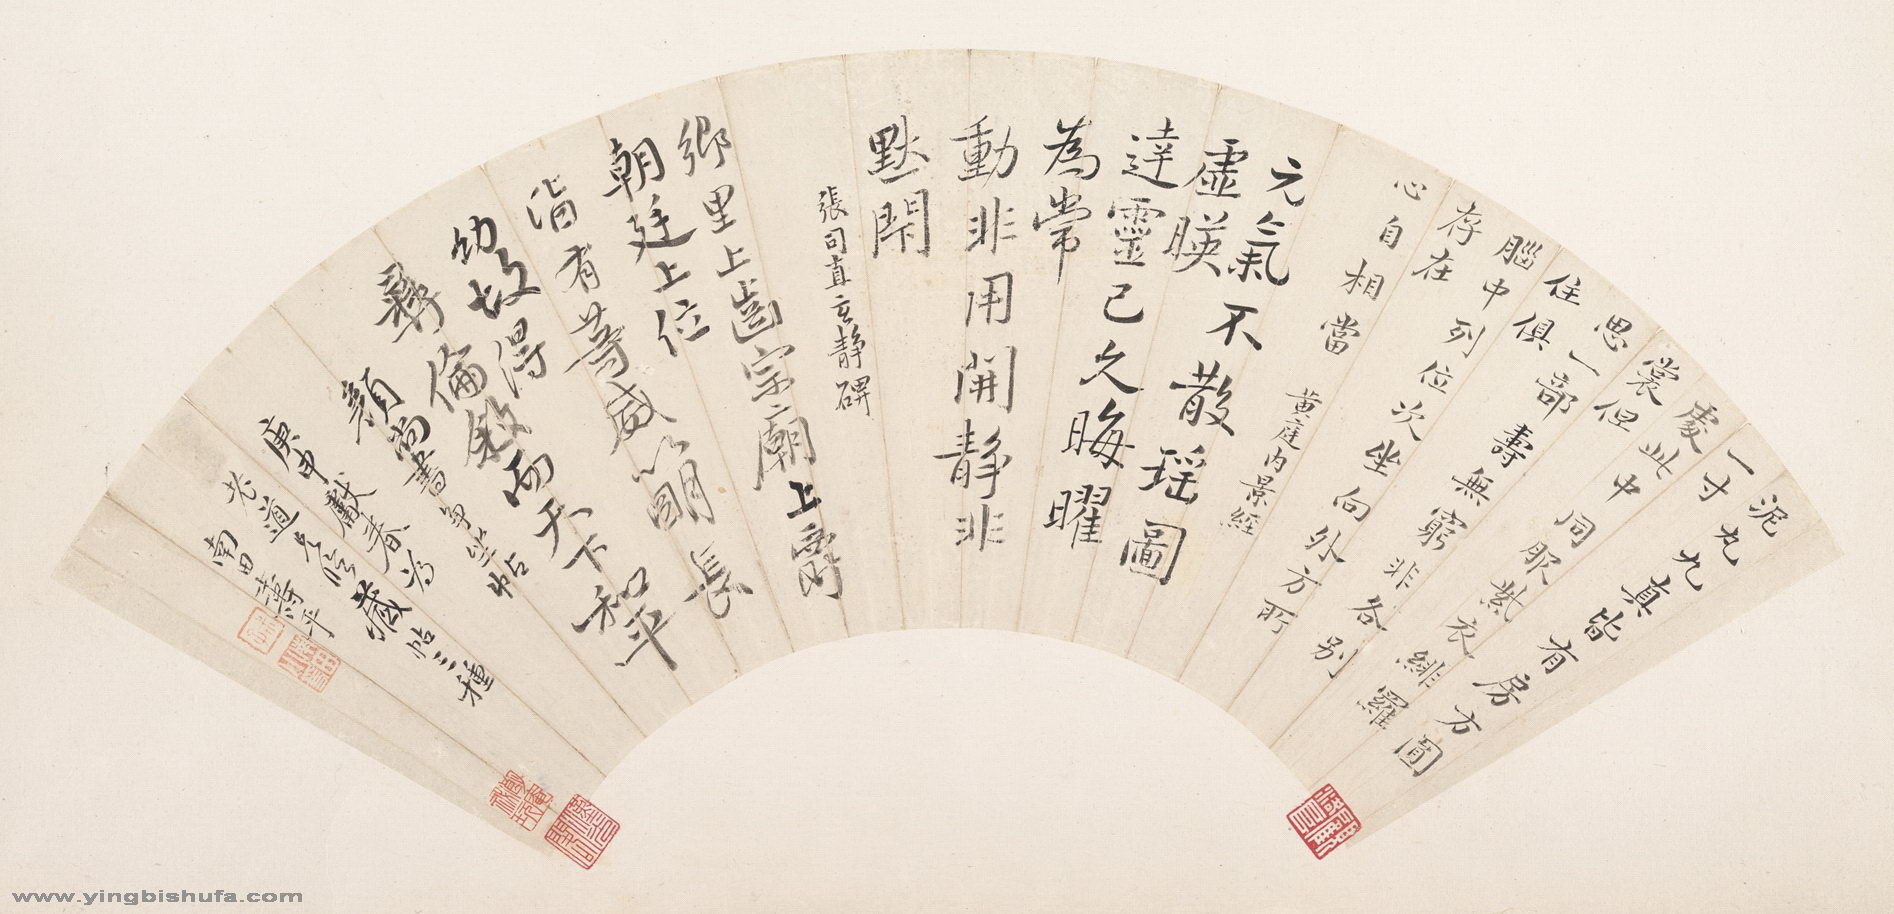 泥丸九真皆有房方圓
一寸
處此中同服紫衣緋羅
裳但
思一部壽無窮非各別
住俱
腦中列位次坐向外方所
存在
心自相當
黃庭内景經
元氣
虛暎不散瑶圖
達靈己久晦曜
為常
動非用開静非
默閇
張司直玄静碑
鄉里上齒宗廟上爵
朝廷上位
皆有等威以明長
幼故得
彝倫敘而天下和平
顏尚書争坐帖
庚申獻春為
老道 藏帖三種
南田壽平
www.yingbishufa.com